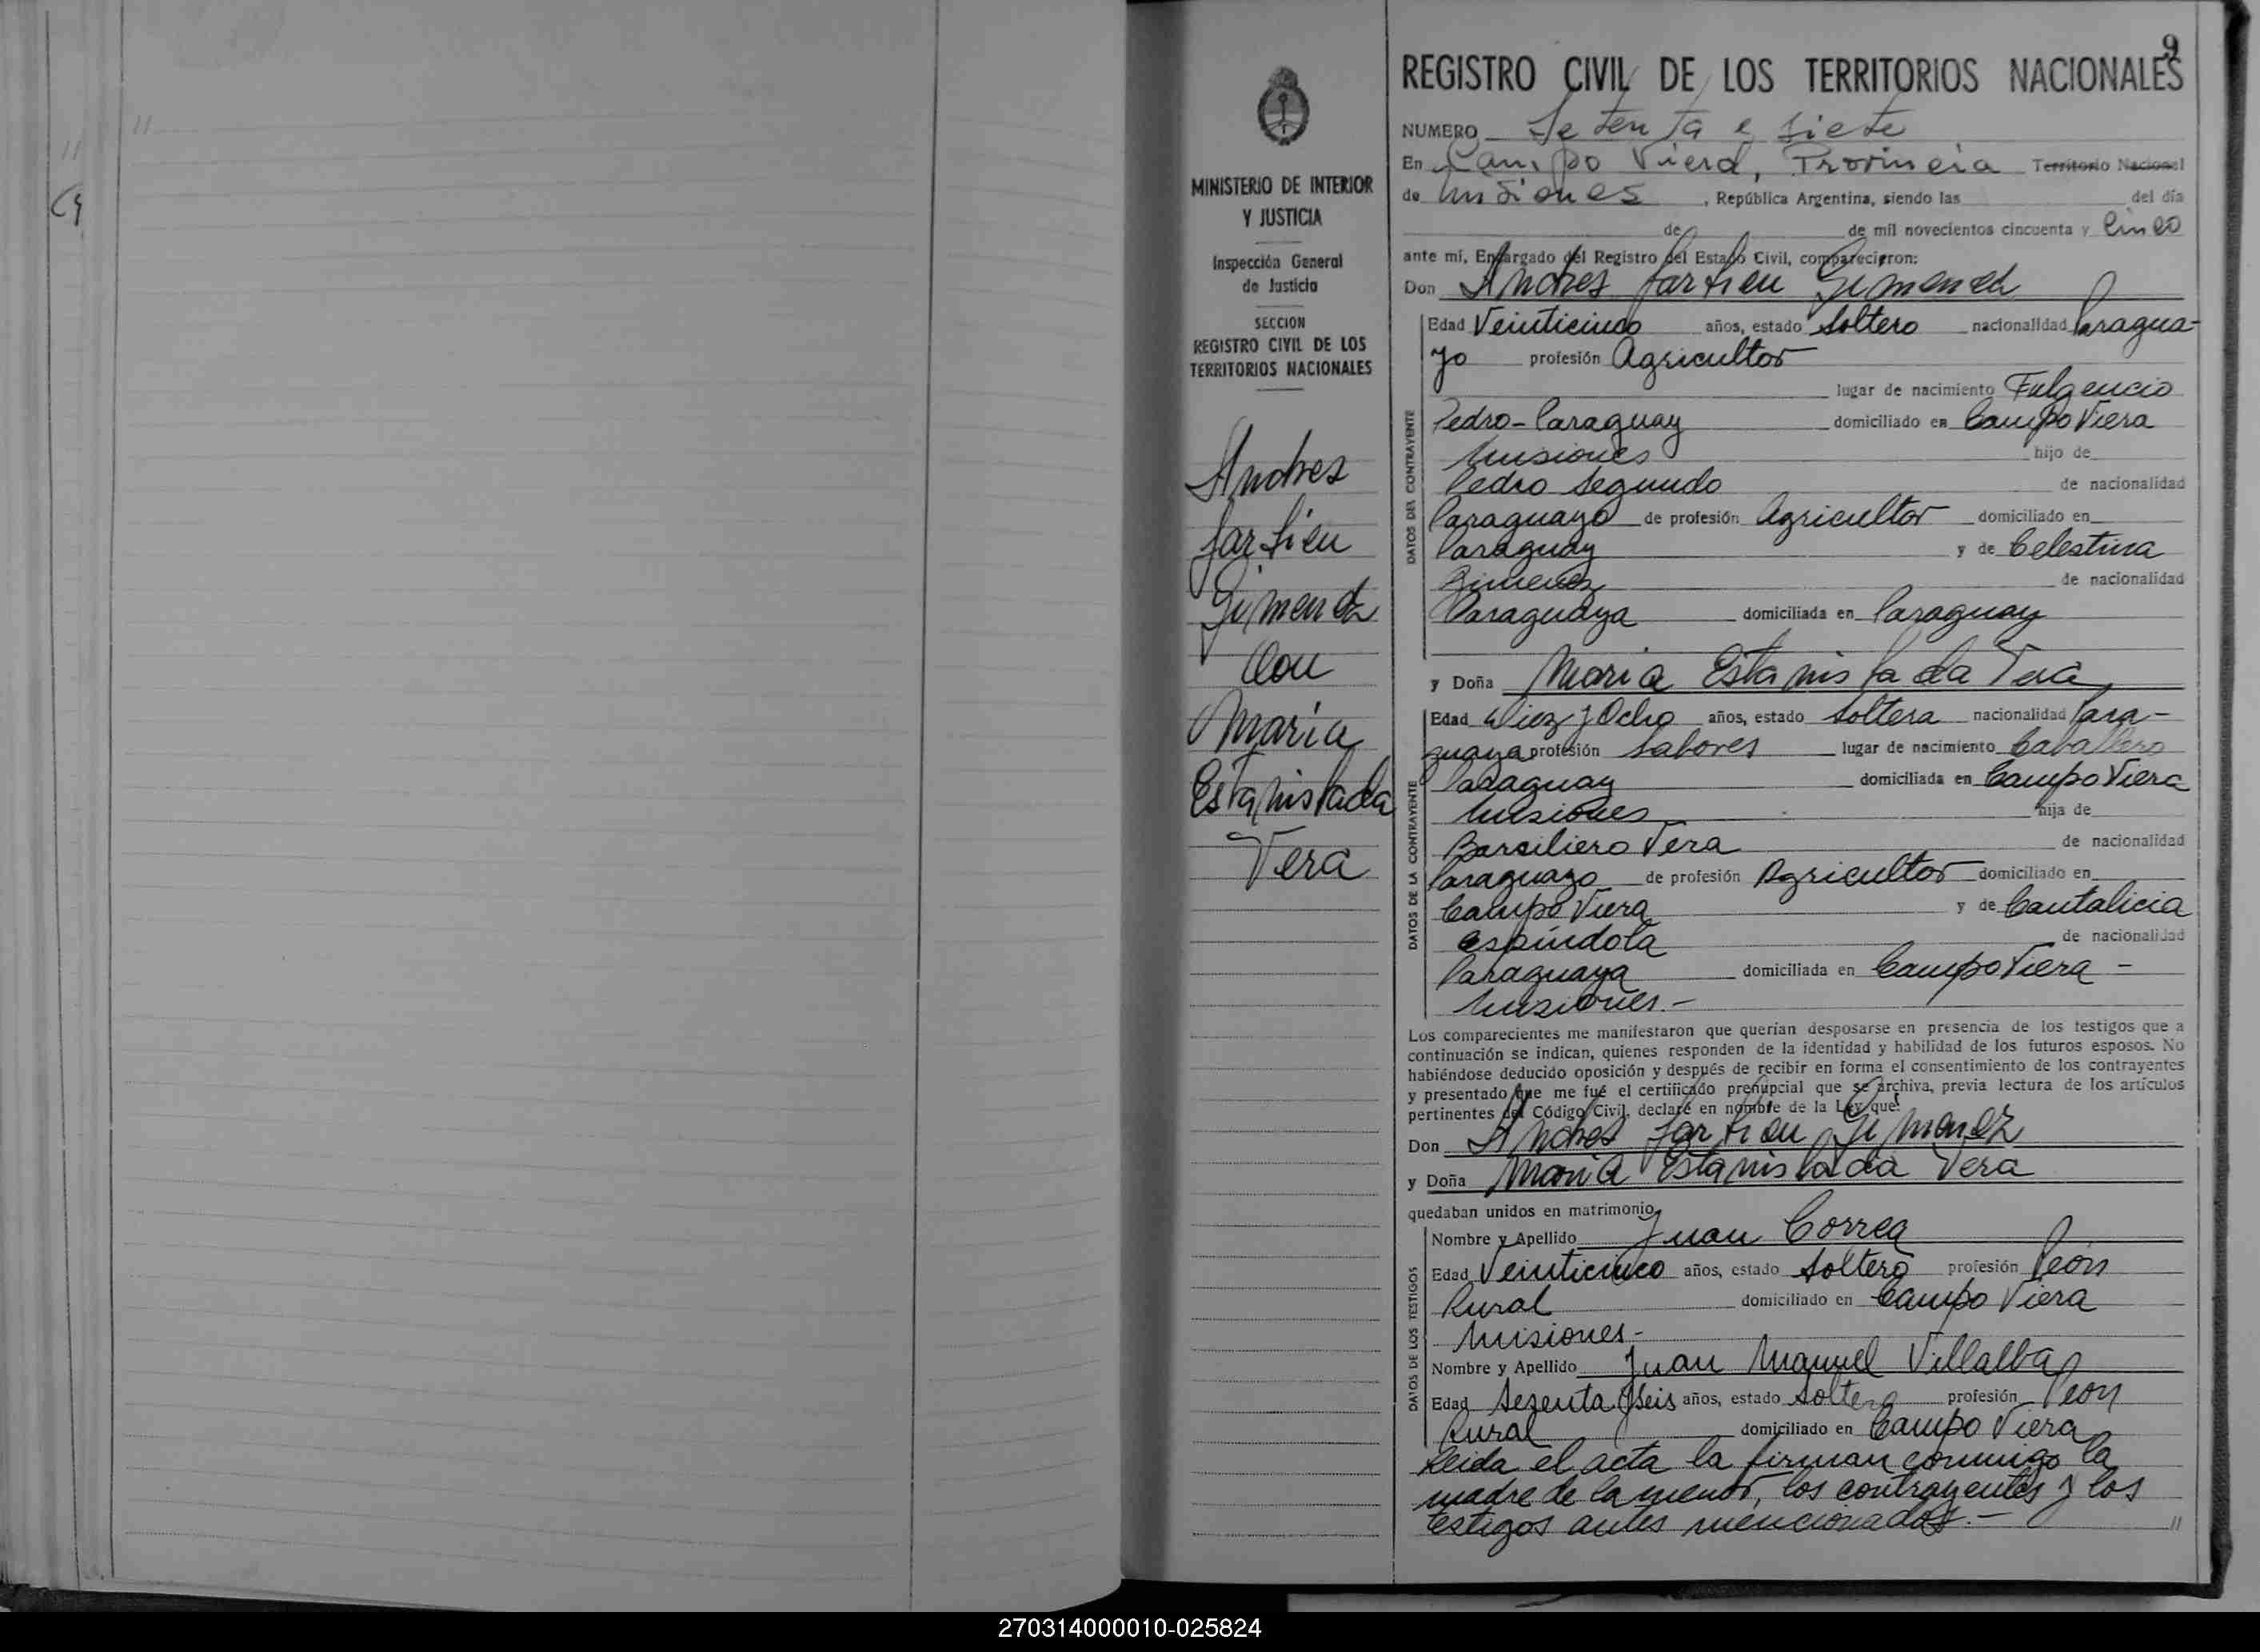 9
REGISTRO CIVIL DE LOS TERRITORIOS NACIONALES
NUMERO Setenta y siete
En Campo Viera, Provincia Territorio Nacional
de Misiones, República Argentina, siendo las del día
de de mil novecientos cincuenta y Cinco
ante mí, Encargado del Registro del Estado Civil, comparecieron:
Don Andres Gimenez
Edad Veinticinco años, estado Soltero nacionalidad Paragua-
yo profesión Agricultor
lugar de nacimiento Fulgencio
Pedro-Paraguay domiciliado en Campo Viera
Misiones hijo de
Pedro Segundo de nacionalidad
Paraguayo de profesión Agricultor domiciliado en
Paraguay y de Celestina
Gimenez de nacionalidad
Paraguaya domiciliada en Paraguay
y Doña Maria Estanislada Vera
Edad Diez y Ocho años, estado Soltera nacionalidad Para-
guaya profesión Labores lugar de nacimiento Caballero
Paraguay domiciliada en Campo Viera
Misiones hija de
Vera de nacionalidad
Paraguayo de profesión Agricultor domiciliado en
Campo Viera y de Cantalicia
Espíndola de nacionalidad
Paraguaya domiciliada en Campo Viera -
Misiones.-
Los comparecientes me manifestaron que querían desposarse en presencia de los testigos que a
continuación se indican, quienes responden de la identidad y habilidad de los futuros esposos. No
habiéndose deducido oposición y después de recibir en forma el consentimiento de los contrayentes
y presentado que me fué el certificado prenupcial que se archiva, previa lectura de los artículos
pertinentes del Código Civil, declaré en nombre de la Ley que:
Don Andres Gimenez
y Doña Maria Estanislada Vera
quedaban unidos en matrimonio.
Nombre y Apellido Juan Correa
Edad Veinticinco años, estado Soltero profesión Peón
Rural domiciliado en Campo Viera
Misiones-
Nombre y Apellido Juan Manuel Villalba
Edad Sesenta y Seis años, estado Soltero profesión Peon
Rural domiciliado en Campo Viera
Leida el acta la firman conmigo la
madre de la menor, los contrayentes y los
testigos antes mencionados.-
DATOS DEL CONTRAYENTE
DATOS DE LA CONTRAYENTE
DATOS DE LOS TESTIGOS
MINISTERIO DE INTERIOR
Y JUSTICIA
Inspección General
de Justicia
SECCION
REGISTRO CIVIL DE LOS
TERRITORIOS NACIONALES
Andres
Gimenez
Con
Maria
Estanislada
Vera
270314000010-025824